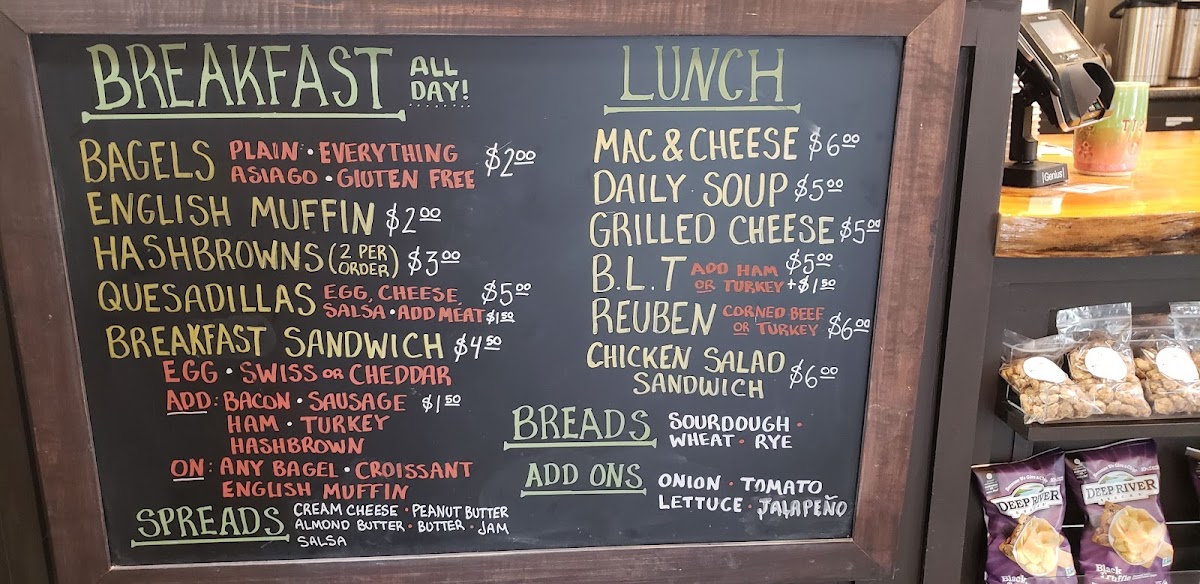 BREAKFAST ALL DAY!
BAGELS PLAIN · EVERYTHING $2.00
ASIAGO · GLUTEN FREE
ENGLISH MUFFIN $2.00
HASHBROWNS (2 PER ORDER) $3.00
QUESADILLAS EGG, CHEESE, $5.00
SALSA · ADD MEAT $1.50
BREAKFAST SANDWICH $4.50
EGG · SWISS OR CHEDDAR
ADD: BACON · SAUSAGE $1.50
HAM · TURKEY
HASHBROWN
ON: ANY BAGEL · CROISSANT
ENGLISH MUFFIN
SPREADS CREAM CHEESE · PEANUT BUTTER
ALMOND BUTTER · BUTTER · JAM
SALSA
LUNCH
MAC & CHEESE $6.00
DAILY SOUP $5.00
GRILLED CHEESE $5.00
B.L.T ADD HAM $5.00
OR TURKEY +$1.50
REUBEN CORNED BEEF
OR TURKEY $6.00
CHICKEN SALAD
SANDWICH $6.00
BREADS SOURDOUGH ·
WHEAT · RYE
ADD ONS ONION · TOMATO
LETTUCE · JALAPEÑO
Genius
DEEP RIVER
Black Truffle
DEEP RIVER
Black Truffle